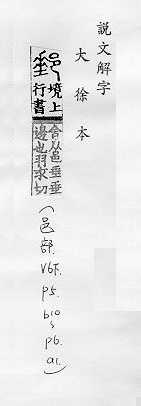 說文解字
大徐本
郵
境上
行書
舍从邑垂垂
邊也羽求切
(邑部. V6下. P5. b10~P6. a1.)